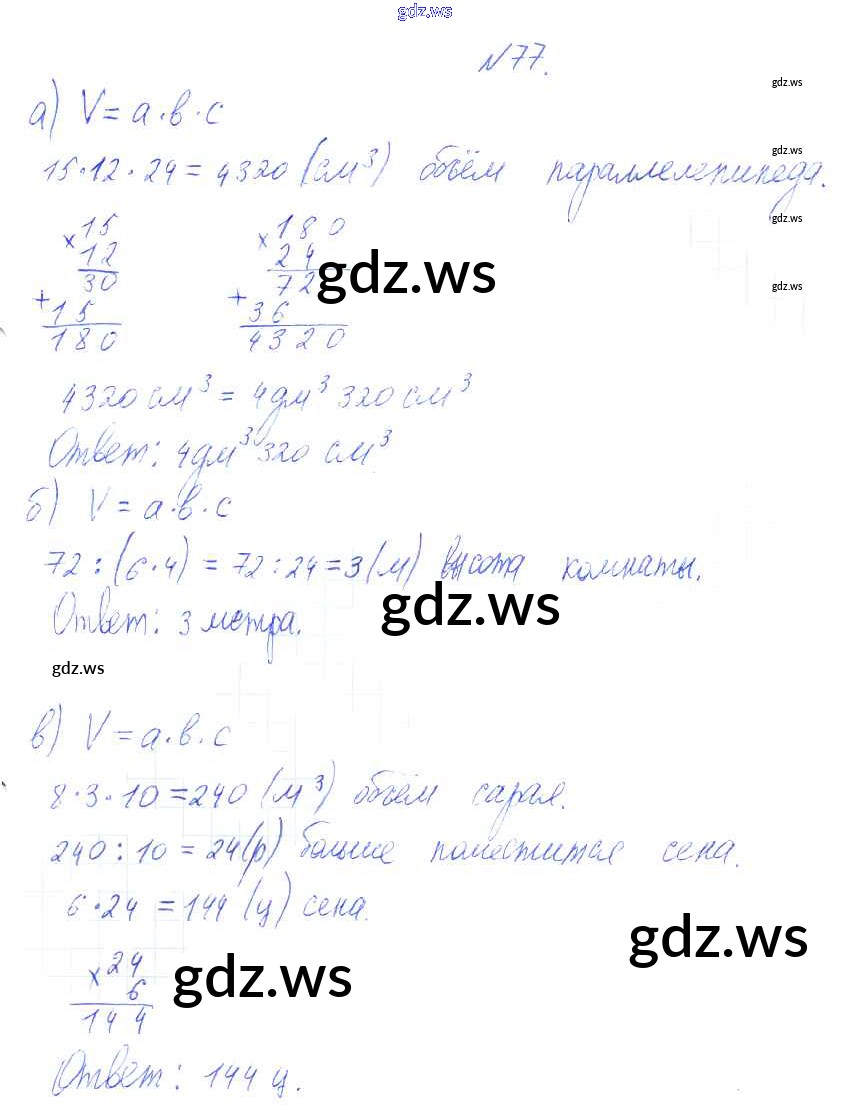 gdz.ws
N77.
gdz.ws
а) V = a·в·c
gdz.ws
15·12·24 = 4320 (см³) объём параллелепипеда.
gdz.ws
×15 ×180
12 24
30 72 gdz.ws
gdz.ws
+15 +36
180 4320
4320 см³ = 4дм³ 320 см³
Ответ: 4дм³ 320 см³
б) V = a·в·c
72 : (6·4) = 72 : 24 = 3 (м) высота комнаты.
gdz.ws
Ответ: 3 метра.
gdz.ws
в) V = a·в·c
8·3·10 = 240 (м³) объём сарая.
240 : 10 = 24 (р) больше поместится сена.
6·24 = 144 (ц) сена.
gdz.ws
×24
6 gdz.ws
144
Ответ: 144 ц.